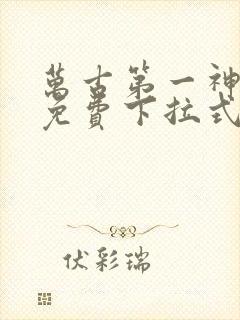 萬古第一神
免費下拉式
伏彩瑞